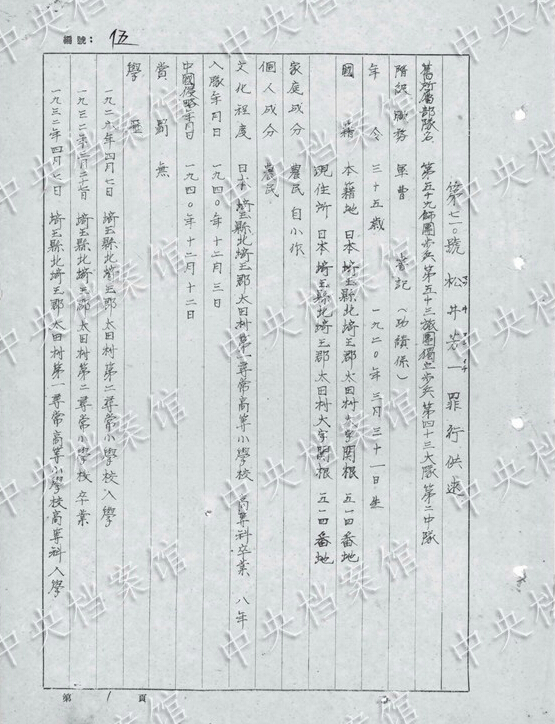 編號： 伍
第七一〇號 松井若一 罪行供述
舊所屬部隊名 第五十九師團步兵第五十三旅團獨立步兵第四十三大隊第二中隊
階級職務 軍曹 書記（功績係）
年令 三十五歲 一九二〇年三月三十一日生
國籍 本籍地 日本埼玉縣北埼玉郡太田村大字関根 五一四番地
現住所 日本埼玉縣北埼玉郡太田村大字関根 五一四番地
家庭成分 農民 自小作
個人成分 農民
文化程度 日本埼玉縣北埼玉郡太田村第一尋常高等小學校 高等科卒業 八年
入隊年月日 一九四〇年十二月三日
中國侵略年月日 一九四〇年十二月十二日
賞罰 無
學歷
一九二六年四月七日 埼玉縣北埼玉郡太田村第二尋常小學校入學
一九三二年三月二十日 埼玉縣北埼玉郡太田村第二尋常小學校卒業
一九三二年四月七日 埼玉縣北埼玉郡太田村第一尋常高等小學校高等科入學
第 1 頁
中央档案馆